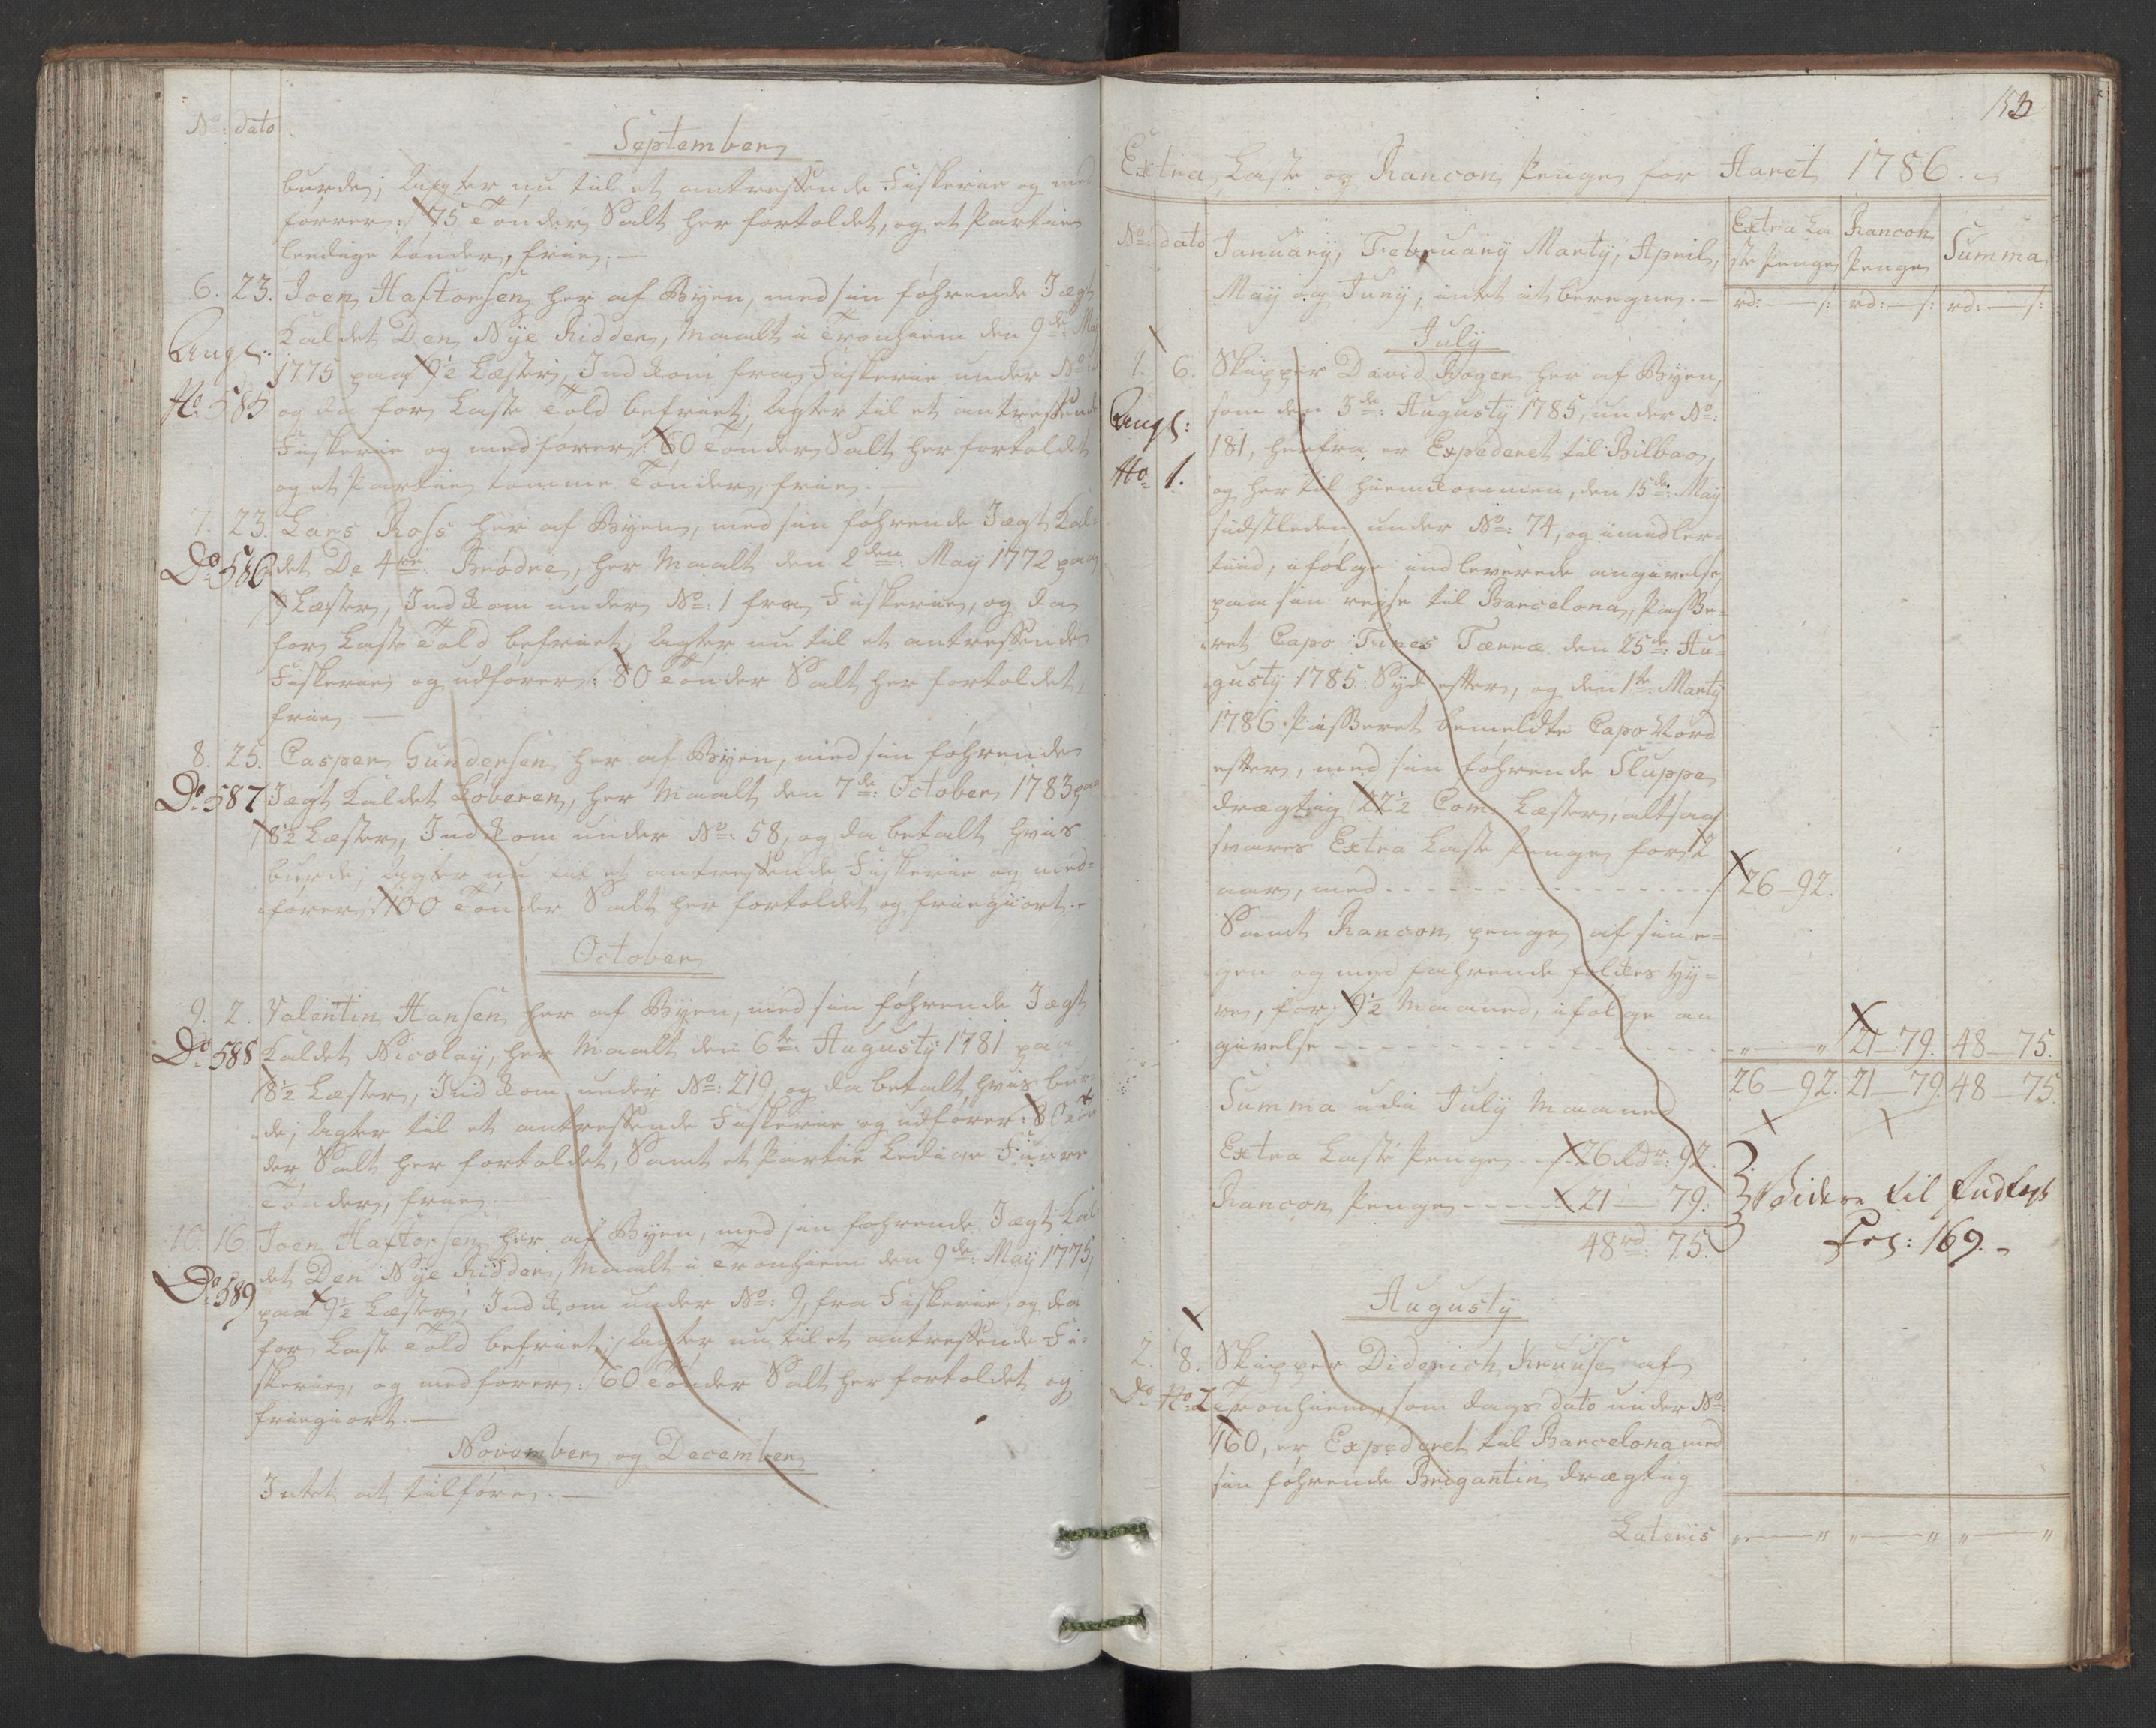 No: dato
September
burde; Agter nu til et antreffende Fiskerie og med
fører: 75 Tønder Salt her fortoldet, og et Partie
leedige tønder, frie. —
6. 23. Joen Haftorsen her af Byen, med sin føhrende Jægt
Kaldet Den Nye Ridder, Maalt i Tronhiem den 9de May
Angl: No 585
1775 paa 9½ Læster, Indkom fra Fiskerie under No:
og da for Laste Told befriet; Agter til et antreffende
Fiskerie og medfører: 60 Tønder Salt her fortoldet
og et Partie tomme Tønder, frie. —
7. 23. Lars Ross her af Byen, med sin føhrende Jægt Kal-
Do 586 det De 4re Brødre, her Maalt den 2den May 1772 paa
9 Læster, Indkom under No: 1 fra Fiskerie, og da
for Laste Told befriet; Agter nu til et antreffende
Fiskerie og udfører: 80 Tønder Salt her fortoldet,
frie —
8. 25. Casper Gundersen her af Byen, med sin føhrende
Do 587 Jægt Kaldet Løberen, her Maalt den 7de October 1783 paa
8½ Læster, Indkom under No: 58, og da betalt hvis
burde; Agter nu til et antreffende Fiskerie og med-
fører: 100 Tønder Salt her fortoldet og friegiort. —
October
9. 2. Valentin Hansen her af Byen, med sin føhrende Jægt
Do 588 Kaldet Nicolay, her Maalt den 6te Augusty 1781 paa
8½ Læster, Indkom under No: 219, og da betalt, hvis bur-
de; Agter til et antreffende Fiskerie og udfører: 80 Tøn
der Salt her fortoldet, Samt et Partie Ledige Furre
Tønder, frie. —
10. 16. Joen Haftorsen her af Byen, med sin føhrende Jægt Kal
det Den Nye Ridder, Maalt i Tronhiem den 9de May 1775,
Do 589 paa 9½ Læster, Indkom under No: 9, fra Fiskerie, og da
for Laste Told befriet; Agter nu til et antreffende Fi-
skerie, og medfører: 60 Tønder Salt her fortoldet og
friegiort. —
November og December
Intet at tilføre. —
153
Extra Laste og Rancon Penge for Aaret 1786.
No: dato
January, February Marty, April,
May og Juny, intet at beregne. —
Extra La
ste Penge
Rancon
Penge
Summa
rd: — s: rd: — s: rd: — s:
July
1. 6. Skipper David Bogen her af Byen,
Angl: No 1.
som den 3de Augusty 1785, under No:
181, herfra er Expederet til Bilbao,
og her til hiemkommen, den 15de May
sidstleden under No: 74, og imidler-
tiid, ifølge indleverede angivelse,
paa sin reise til Barcelona, Passe-
ret Capo Finis Terræ den 25de Au-
gusty 1785: Syd efter, og den 1te Marty
1786. Passeret bemeldte Capo Nord
efter, med sin føhrende Sluppe
drægtig 22½ Com: Læster, altsaa
svares Extra Laste Penge for ½
aar, med - - - - 26 — 92.
Samt Rancon penge af sin e-
gen og med fahrende folkes Hy-
re, for 9½ Maaned, ifølge an
givelse - - - - „ — „ 21 — 79. 48 — 75.
26 — 92. 21 — 79. 48 — 75.
Summa udi July Maaned
Extra Laste Penge - 26 Rdr: 92.
Rancon Penge - - - 21 — 79.
48rd: 75.
Videre til Indtegt
Fol: 169. —
Augusty
2. 8. Skipper Diderich Kruuse af
Do No: 2 Tronhiem, som dags dato under No:
160, er Expederet til Barcelona med
sin føhrende Brigantin drægtig
Lateris „ — „ „ — „ „ — „